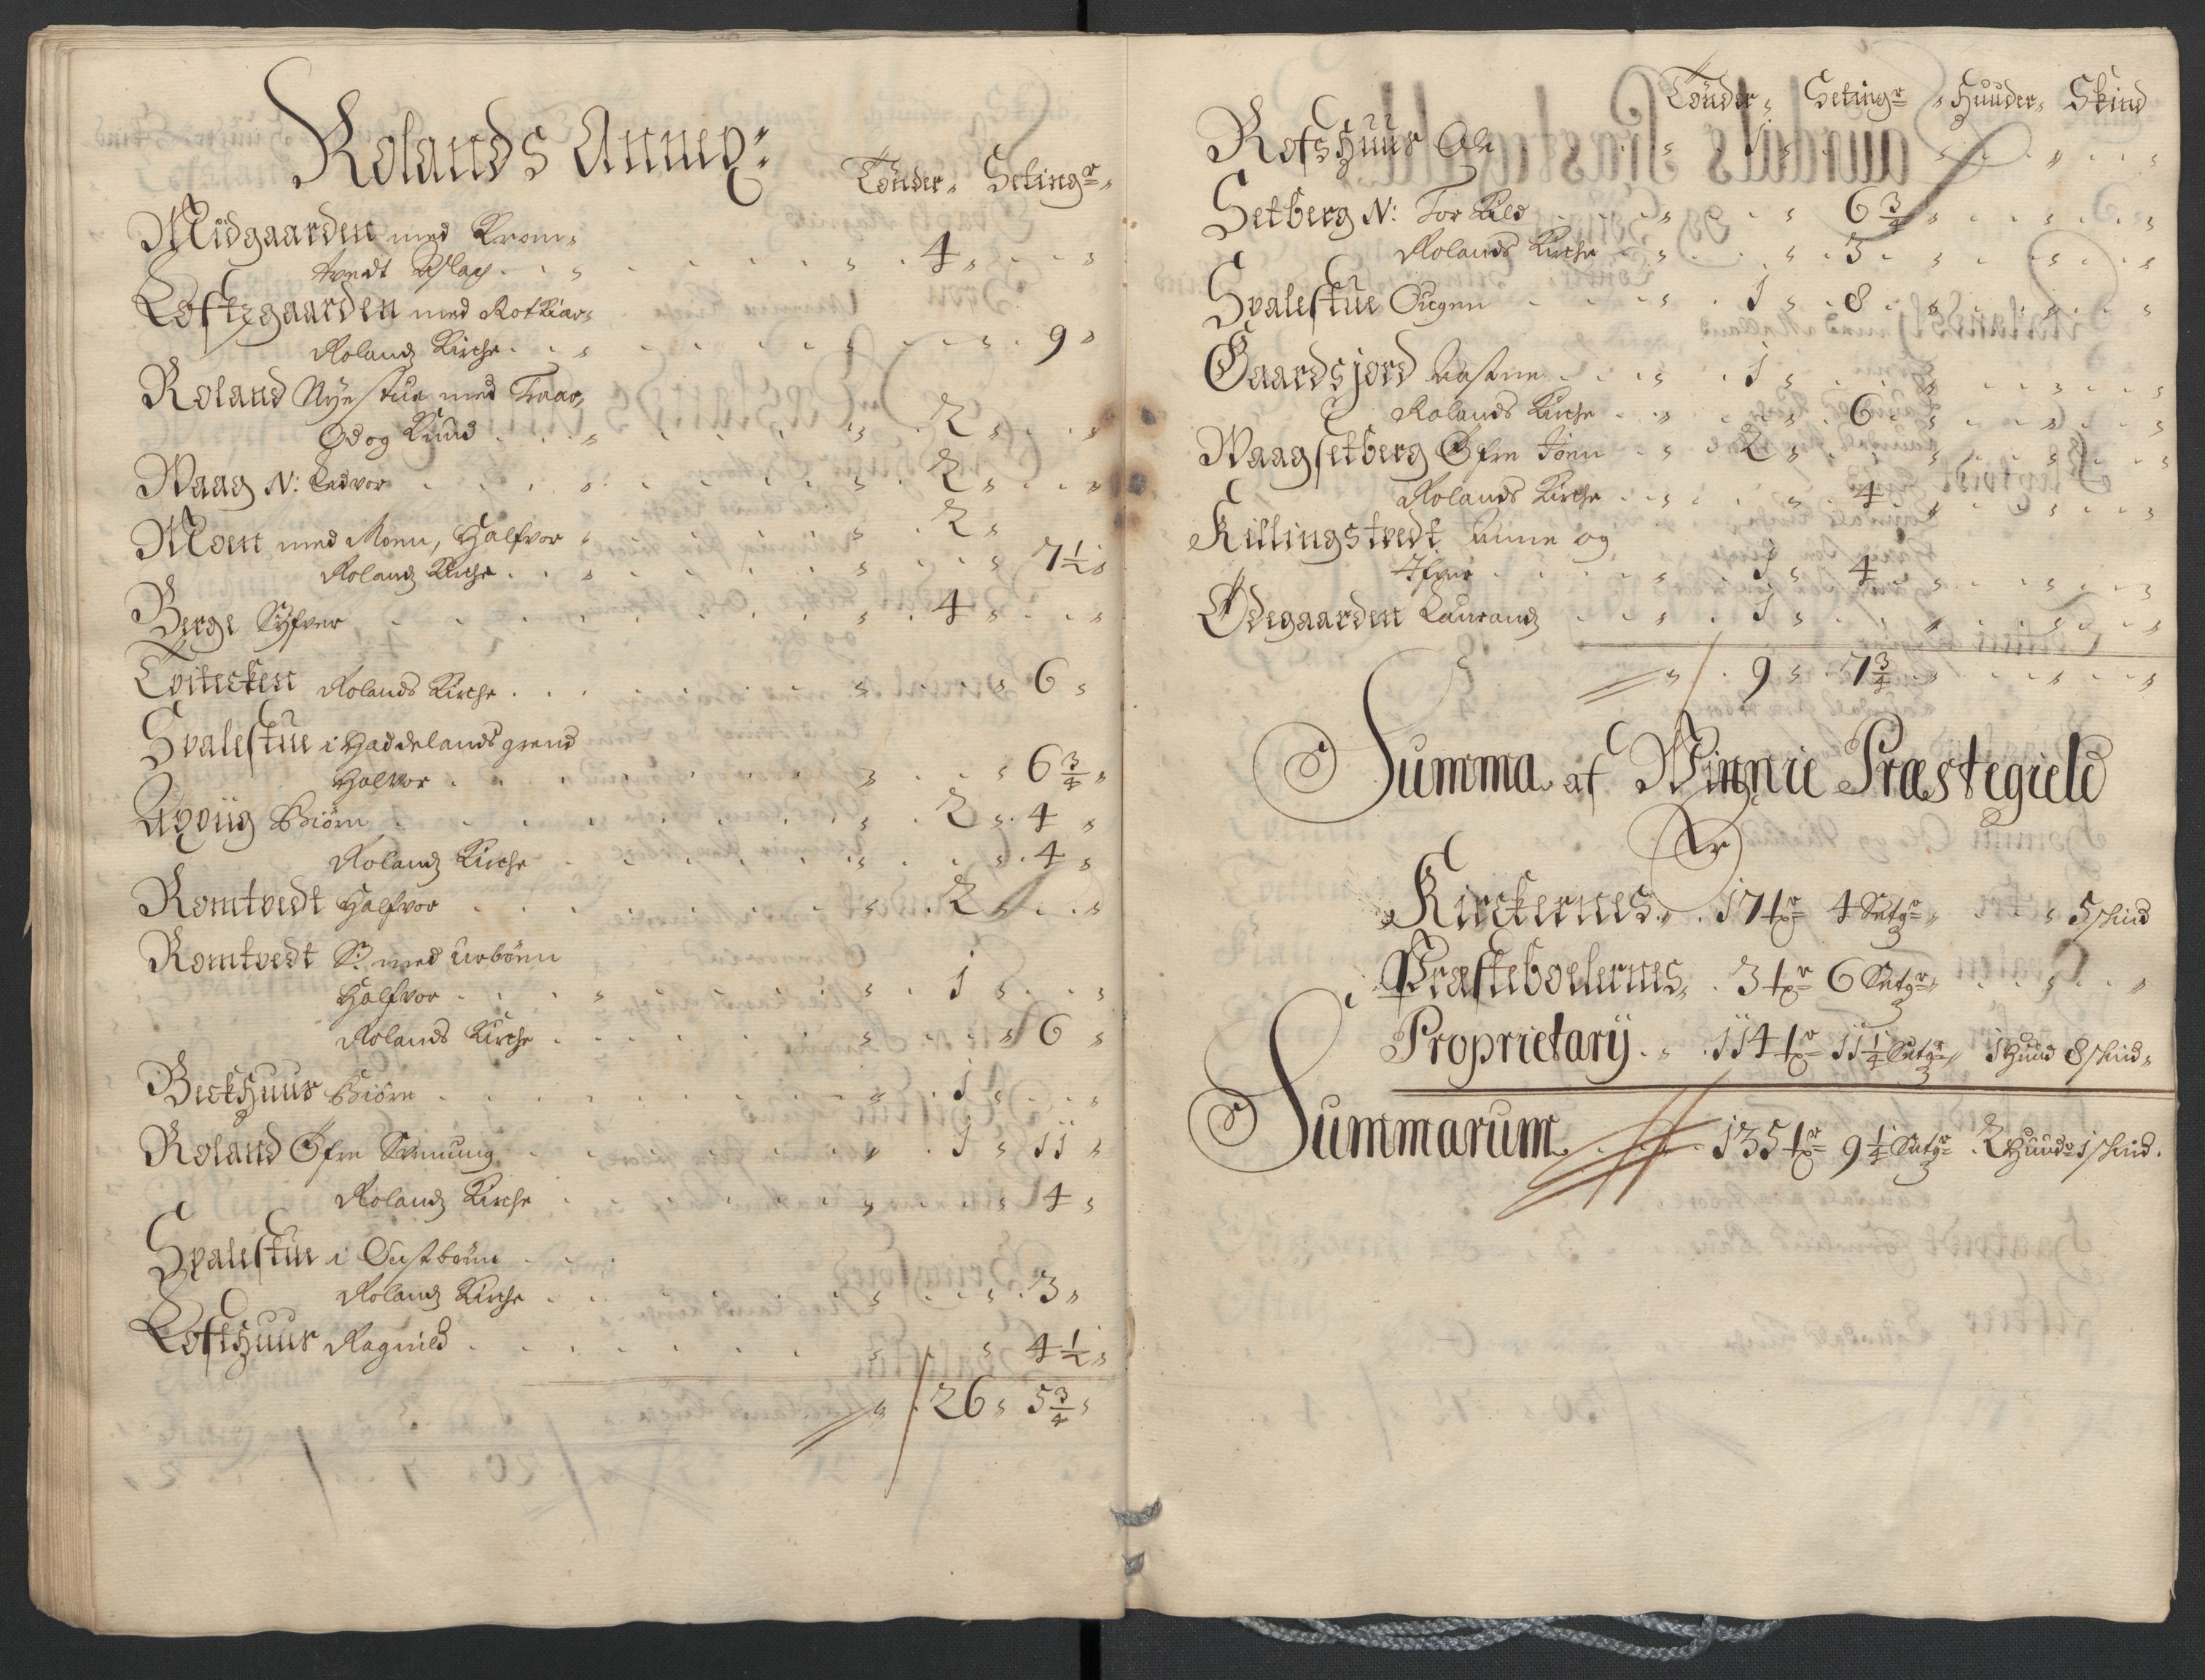 Rolands Annex:
Tønder, Setingr
Midgaarden med Krom,
tvedt Aslag 4
Loftzgaarden med Rotkiær,
Rolandz Kirche 9
Roland Nyestue med Traae,
Od og Knud 2
Waag N: Ledvor 2
Moen med Moen, Halfvor 2
Rolandz Kirche 7 1/2
Berge Syfver 4
Tvitecken Rolands Kirche 6
Svalestue i Haddelands grend
Halvor 6 3/4
Axviig Biørn 2 4
Rolandz Kirche 4
Romtvedt Halfvor 2
Romtvedt S: med Urbønn
Halfvor 1
Rolands Kirche 6
Beckhuus Biørn 1
Roland Øfre Semmung 1 11
Rolandz Kirche 4
Svalestue i Oustbønn
Rolandz Kirche 3
Lofthuus Ragnild 4 1/2
26 5 3/4
Tønder, Setingr, Huuder, Skind
Rofshuus Ole 1
Setberg N: Torkild 6 3/4
Rolands Kirche 3
Svalestue Ougen 1 8
Gaardsjord Tastme 1
Rolands Kirche 6
Waagsetberg Øfre Joen 2
Rolands Kirche 4
Killingstvedt Anne og
Ifver 1 4
Ødegaarden Laurandz 1
9 7 3/4
Summa af Winnie Præstegield
Er
Kirckernes 17 tr 4 Setgr 5 skind
Præsteboelernes 3 tr 6 Setgr
Proprietarÿ 114 tr 11 1/4 Setgr 1 Huud 8 skind
Summarum 135 tr 9 1/4 Setgr 2 Huudr 1 skind.